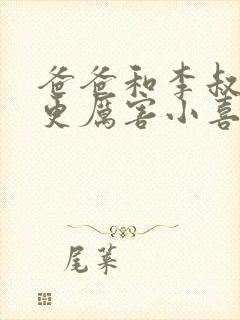 爸爸和李叔
更厲害小喜
尾葉